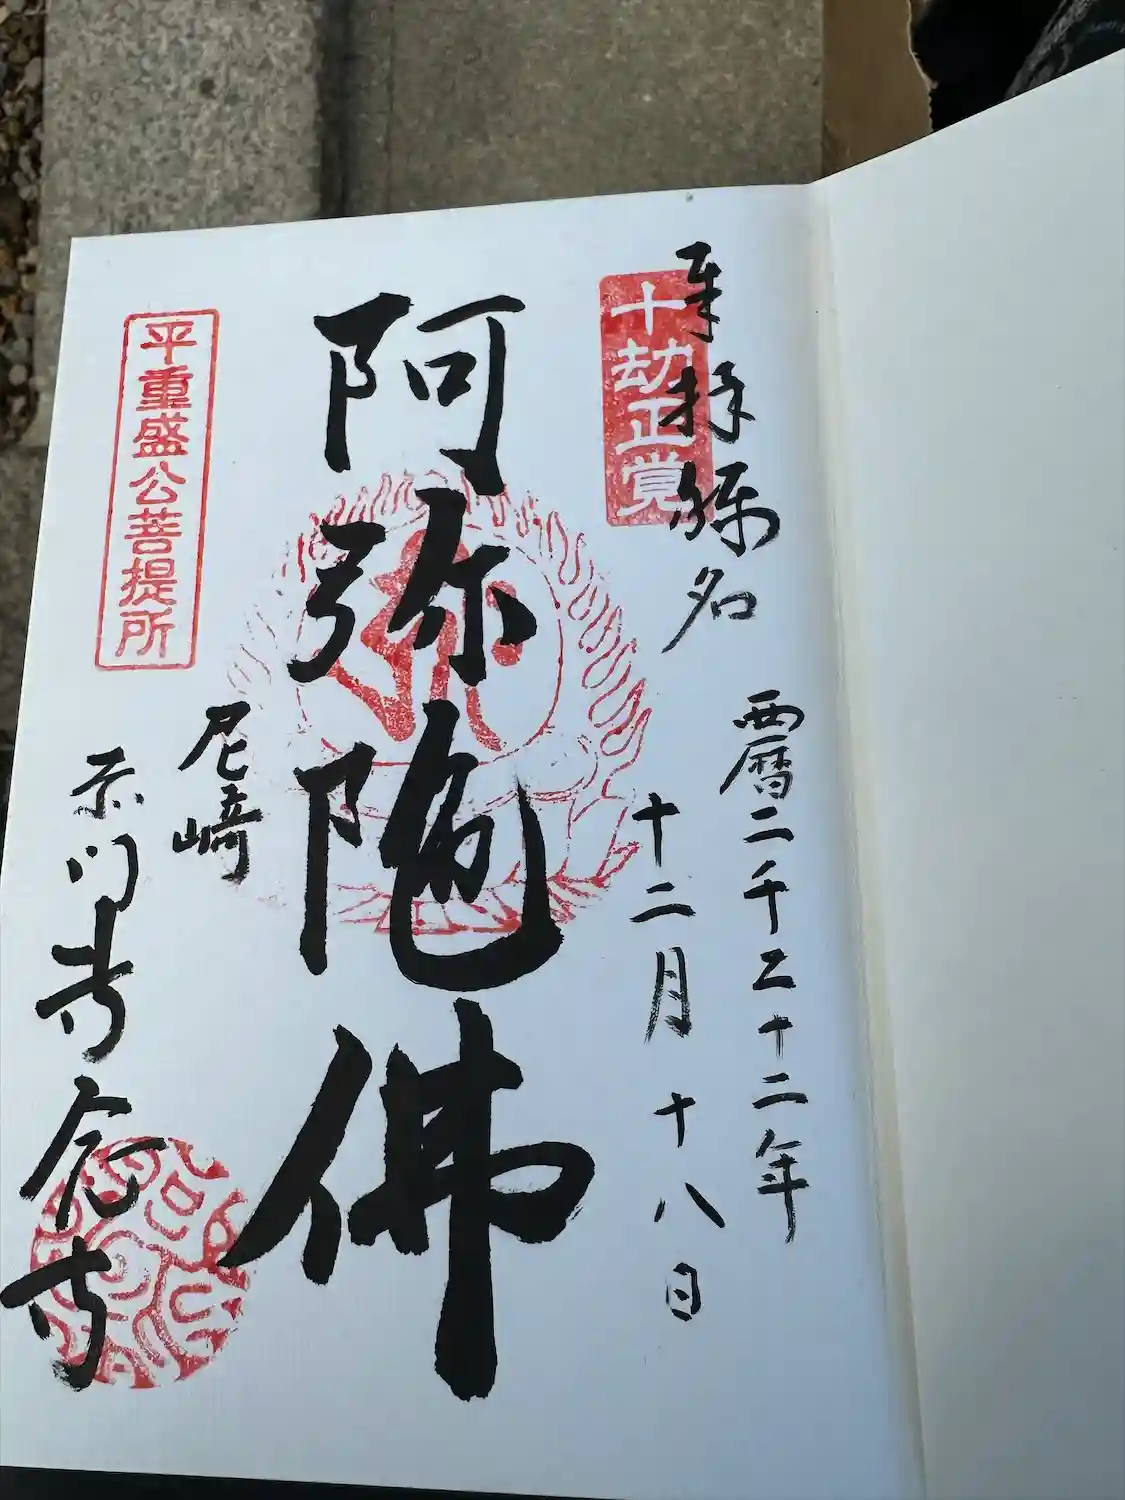 奉拝
名
十劫正覚
西暦二千二十二年
十二月十八日
阿弥陀佛
平重盛公菩提所
尼崎
赤門専念寺